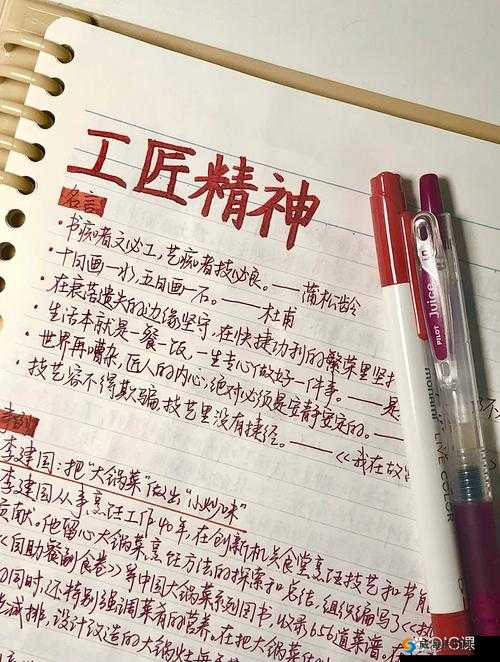 工匠精神
名言
·书痴者文必工,艺痴者技必良。——蒲松龄
·十日画一水,五日画一石。——杜甫
·在衰落遗失的边缘坚守,在快捷功利的繁荣里坚
·生活本就是一餐一饭,一生专心做好一件事。——是
·世界再嘈杂,匠人的内心,绝对必须是安静安定的。——
·技艺容不得欺骗,技艺里没有捷径。——《我在故
事例
李建国:把“大锅菜”做出“小炒味”
李建国从事烹饪工作40年,在创新机关食堂烹饪技艺和节能
贡献。他留心大锅菜烹饪方法的探索和总结,组织编写了《
《自助餐副食卷》等中国大锅菜系列图书,收录656道菜谱。
同时,还特别强调菜肴的营养。在把大锅菜
减排,设计改造的大锅灶每
PILOT Juice
LIVE COLOR